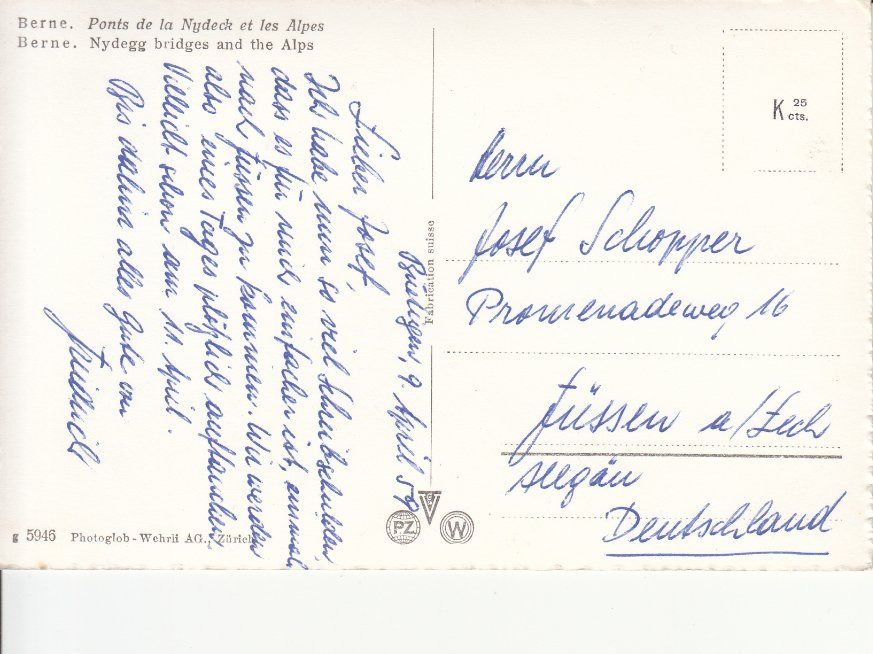 Berne. Ponts de la Nydeck et les Alpes
Berne. Nydegg bridges and the Alps
9. April 59
Lieber Josef,
Ich habe nun so viel Schreibschulden,
dass es für mich einfacher ist, einmal
nach Füssen zu kommen. Wir werden
also eines Tages plötzlich auftauchen,
Villeicht schon am 11. April.
Bis dahin alles Gute von
Fabrication suisse
K 25 cts.
Herrn
Josef Schopper
Promenadeweg 16
Füssen a/Lech
Allgäu
Deutschland
PZ
W
g 5946 Photoglob-Wehrli AG., Zürich